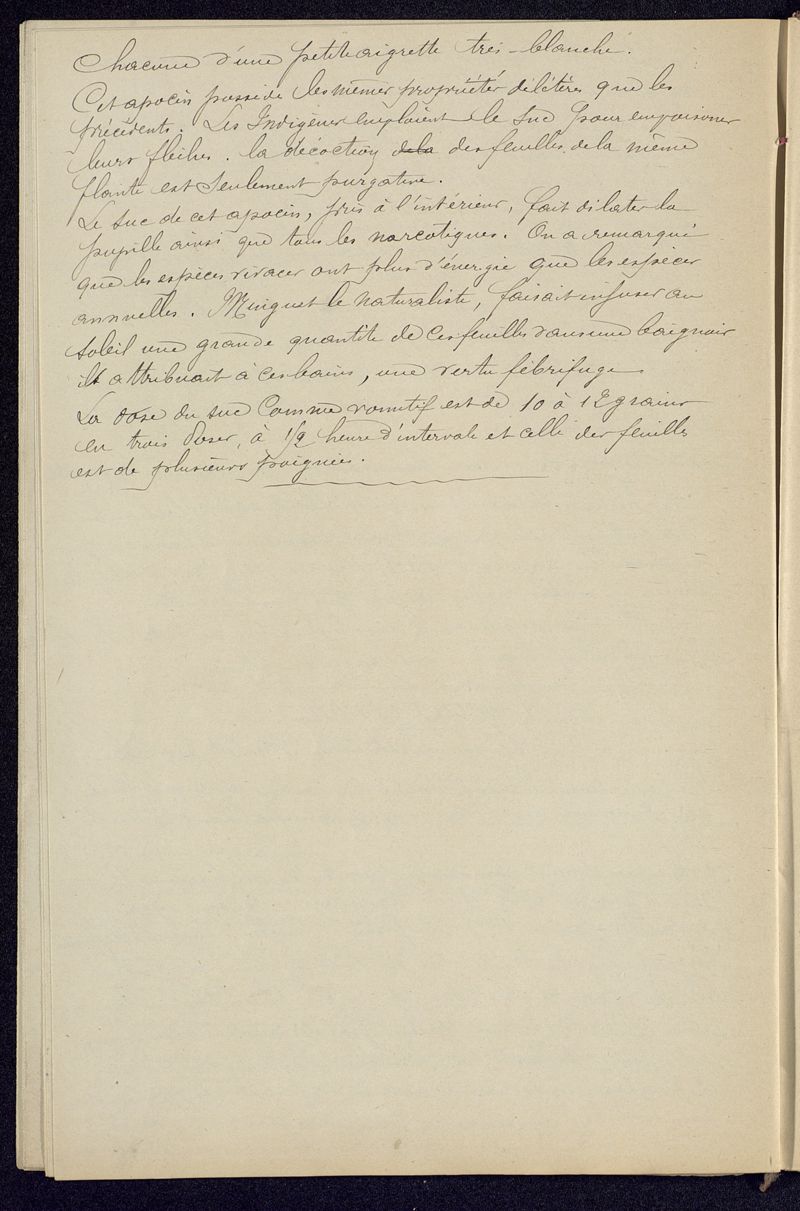 Chacune d'une petite aigrette très-blanche.
Cet apocin possède les mêmes propriétés délétères que les
précédents. Les Indigènes employaient le suc pour empoisoner
leurs flêches. la décoction de la des feuilles de la même
plante est seulement purgative.
Le suc de cet apocin, pris à l'intérieur, fait dilater la
pupille ainsi que tous les narcotiques. On a remarqué
que les espèces vivaces ont plus d'énergie que les espèces
annuelles. Minguet le naturaliste, faisait infuser au
soleil une grande quantité de ces feuilles dans une baignoir
il attribuait à ces bains, une vertu fébrifuge
La dose du suc comme vomitif est de 10 à 12 grains
en trois doses, à 1/2 heure d'intervale et celle des feuilles
est de plusieurs poignées.